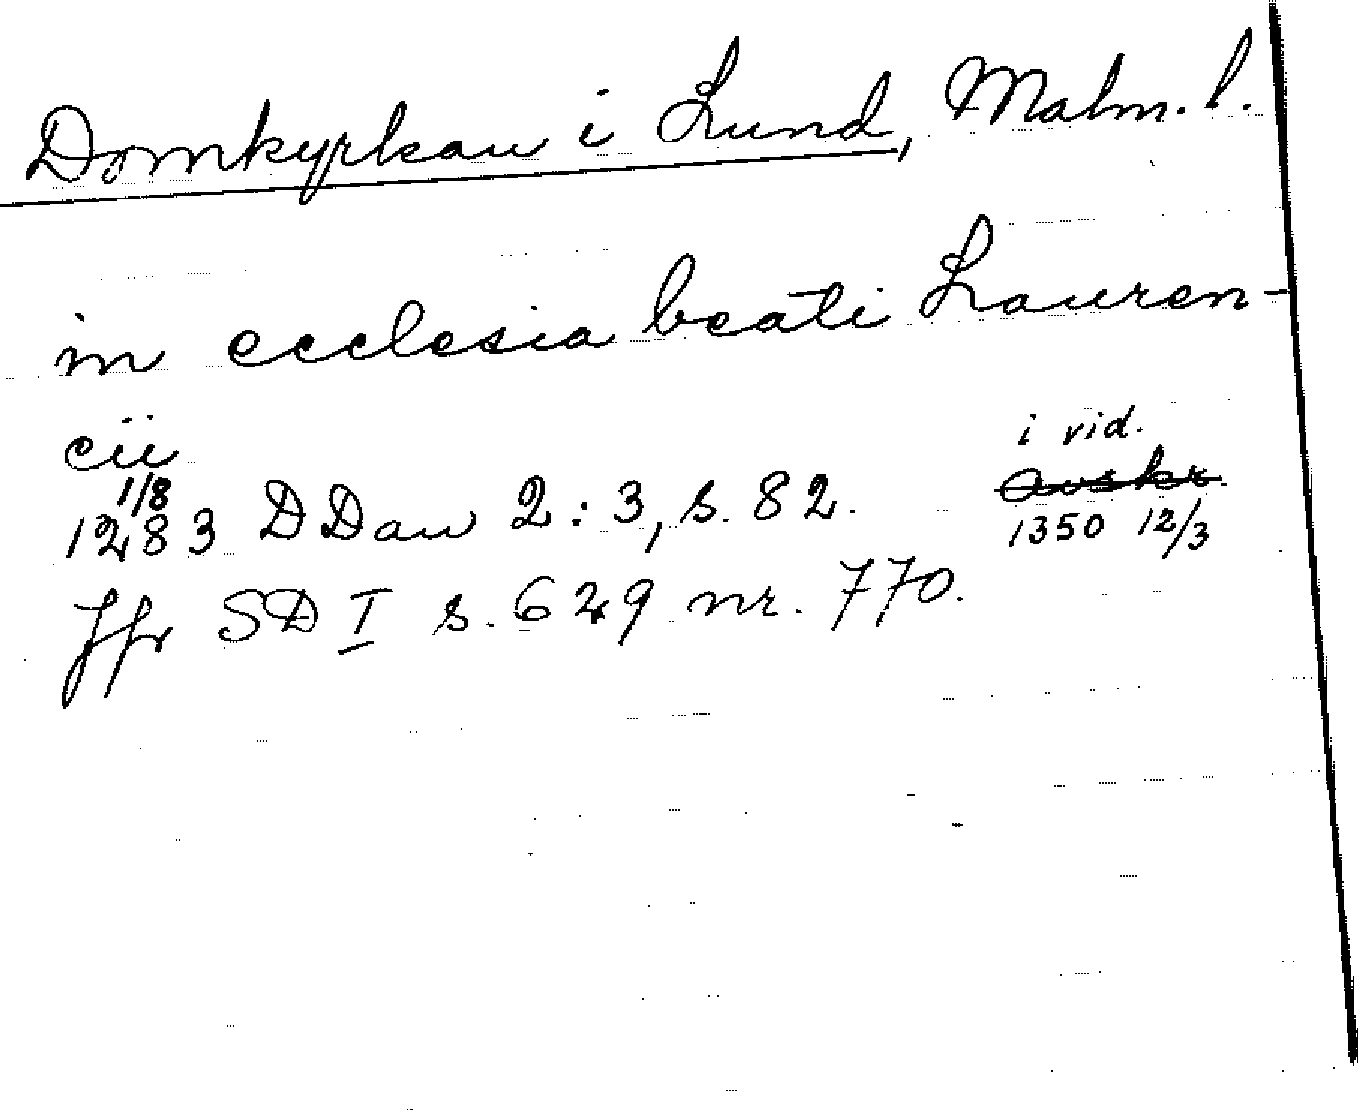 Domkyrkan i Lund, Malm. l.
in ecclesia beati Lauren-
cii
i vid.
1/8
avskr.
1283 DDan 2:3, s. 82.
1350 12/3
Jfr SD I s. 629 nr. 770.